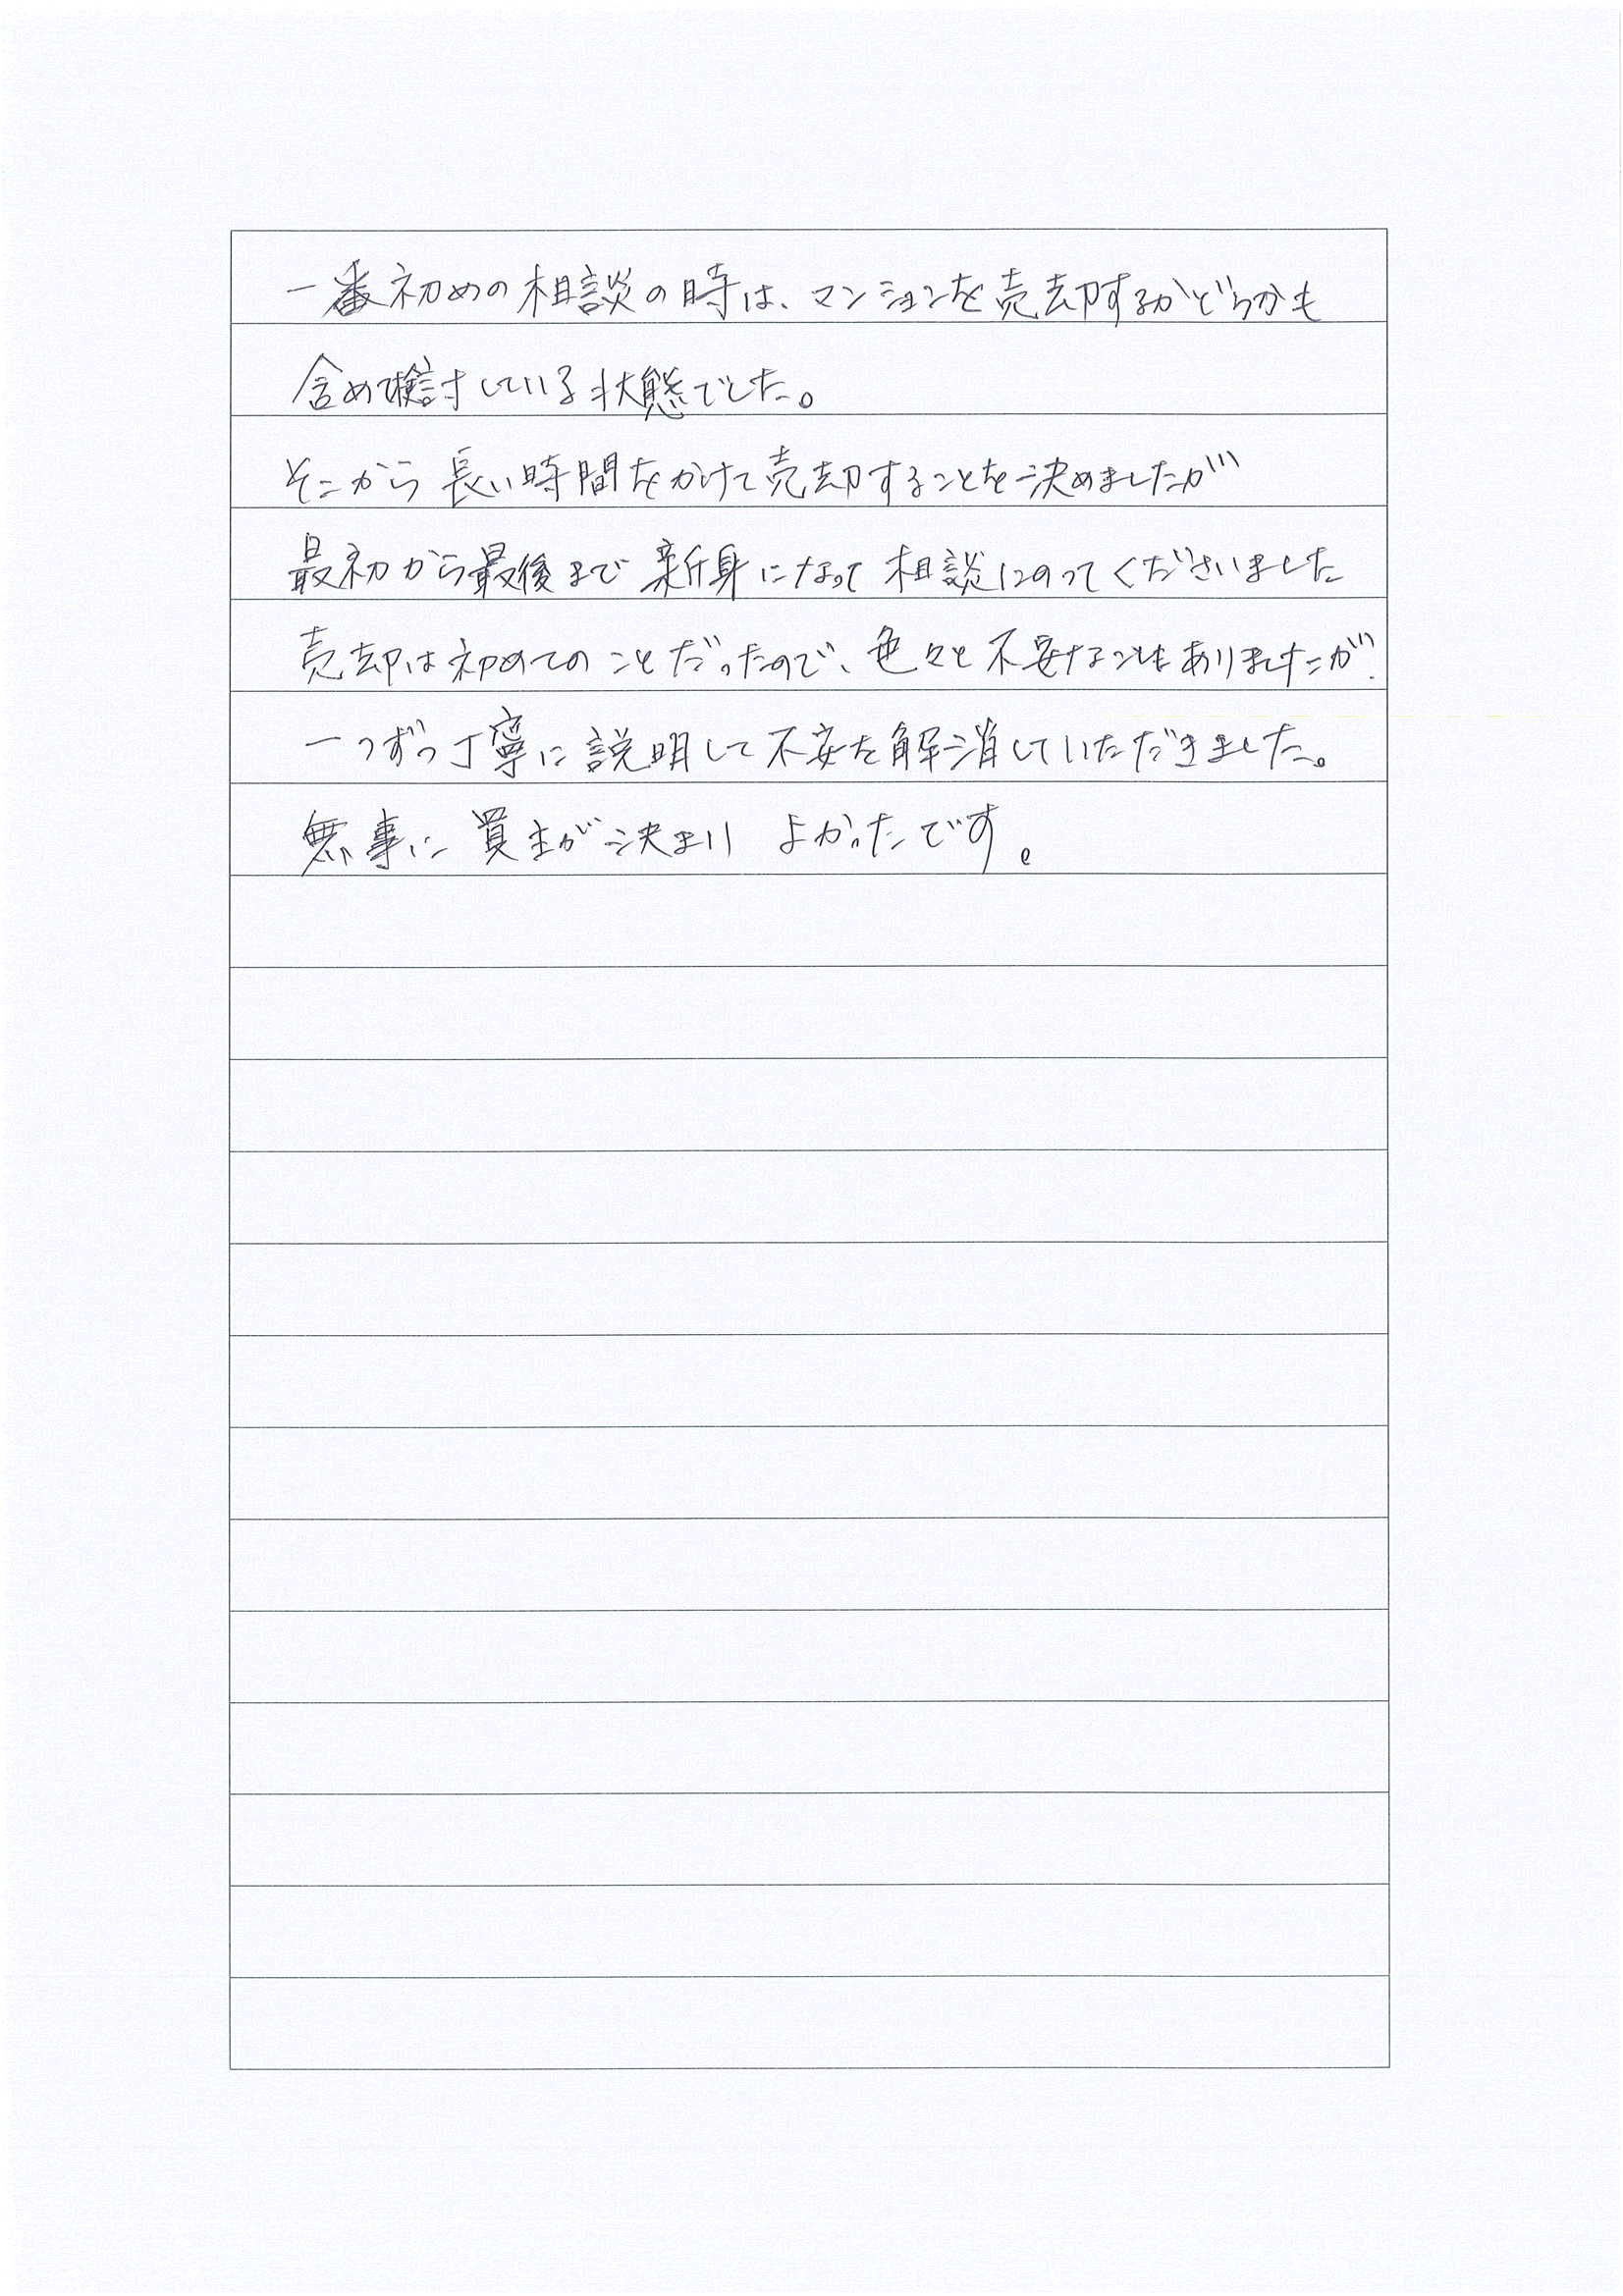 一番初めの相談の時は、マンションを売却するかどうかも
含めて検討している状態でした。
そこから長い時間をかけて売却することを決めましたが
最初から最後まで新身になって相談にのってくださいました
売却は初めてのことだったので、色々と不安なこともありましたが、
一つずつ丁寧に説明して不安を解消していただきました。
無事に買主が決まり よかったです。